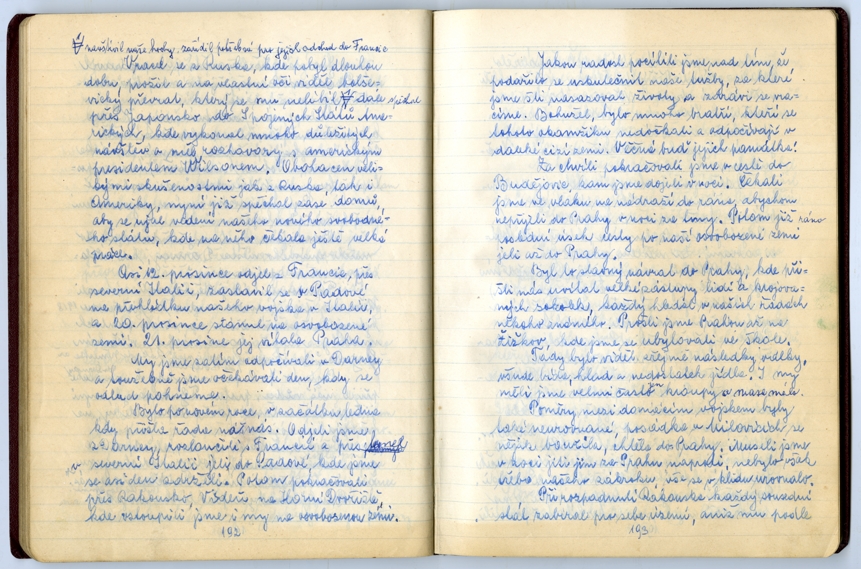 V navštívil naše hochy, zařídil potřebné pro jejich odchod do Francie
Vrace se z Ruska, kde pobyl dlouhou
dobu, prožil a na vlastní oči viděl bolše-
vický převrat, který se mu nelíbil V dále spěchal
přes Japonsko do Spojených Států Ame-
rických, kde vykonal mnoho důležitých
návštěv a měl rozhovory s americkým
presidentem Wilsonem. Obohacen veli-
kými zkušenostmi jak z Ruska, tak i
Ameriky, nyní již spěchal zase domů,
aby se ujal vedení našeho nového svobodné-
ho státu, kde na něho čekala ještě velká
práce.
Asi 12. prosince odjel z Francie, přes
severní Italii, zastavil se v Padově
na přehlídku našeho vojska v Italii,
a 20. prosince stanul na osvobozené
zemi. 21. prosince jej vítala Praha.
My jsme zatím odpočívali v Darney
a toužebně jsme očekávali den, kdy se
odtud pohneme.
Bylo po novém roce, v začátku ledna
kdy přišla řada na nás. Odjeli jsme
z Darney, rozloučili s Francií a přes
severní Italii jeli do Padově, kde jsme
se asi den zdrželi. Potom pokračovali
přes Rakousko, Vídeň, na Horní Dvořiště,
kde vstoupili jsme i my na osvobozenou zemi.
192
Jakou radost pocítili jsme nad tím, že
podařilo se uskutečnit naše tužby, za které
jsme šli nasazovat životy a zdraví se vra-
címe. Bohužel, bylo mnoho bratří, kteří se
tohoto okamžiku nedočkali a odpočívají v
daleké cizí zemi. Věčná budiž jejich památka!
Za chvíli pokračovali jsme v cestě do
Budějovic, kam jsme dojeli v noci. Čekali
jsme ve vlaku na nádraží do rána, abychom
nepřijeli do Prahy v noci za tmy. Potom již ráno
poslední úsek cesty po naší osvobozené zemi
jeli až do Prahy.
Byl to slavný návrat do Prahy, kde při-
šli nás uvítat velké zástupy lidí a krojova-
ných sokolek, každý hledal v našich řadách
někoho známého. Prošli jsme Prahou až na
Žižkov, kde jsme se ubytovali ve škole.
Tady bylo vidět zřejmé následky války,
všude bída, hlad a nedostatek jídla. I my
měli jsme velmi často kroupy a maso málo.
Poměry mezi domácím vojskem byly
také neurovnané, posádka v Milovicích se
nějak bouřila, chtěla do Prahy. Museli jsme
v noci jíti jim za Prahu naproti, nebylo však
třeba našeho zákroku, vše se v klidu urovnalo.
Při rozpadnutí Rakouska každý sousední
stát zabíral pro sebe území, aniž mu podle
193